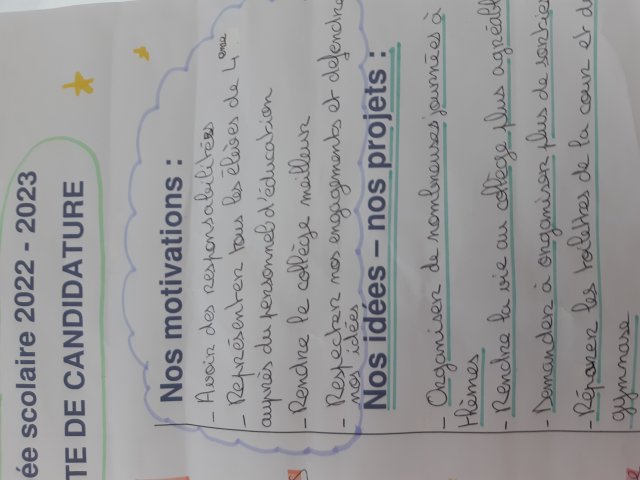 ée scolaire 2022 - 2023
TE DE CANDIDATURE
Nos motivations :
- Avoir des responsabilités
- Représenter tous les élèves de 4ème
auprès du personnel d'éducation
- Rendre le collège meilleur
- Respecter nos engagements et défendre
nos idées
Nos idées – nos projets :
- Organiser de nombreuses journées à
thèmes
- Rendre la vie au collège plus agréabl
- Demander à organiser plus de sortie
- Réparer les toilettes de la cour et d
gymnase